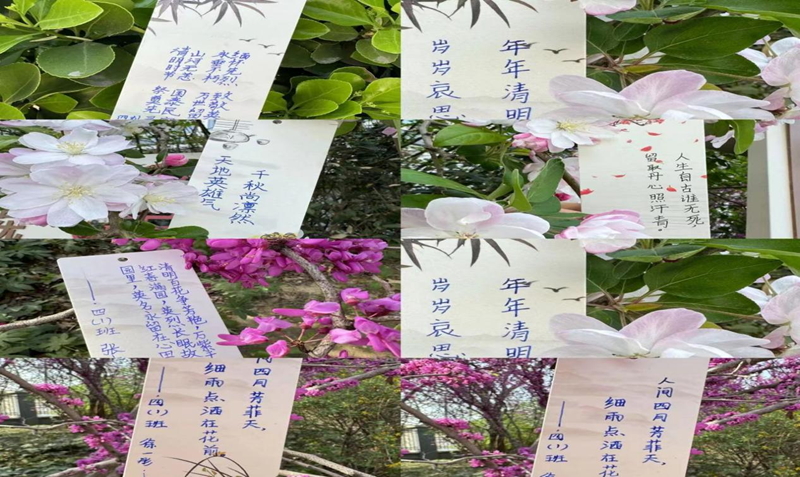 缅怀先烈 致敬英
永垂千秋 万世留
山河无恙 国泰民
清明时节 祭奠英
年年清明
岁岁哀思
千秋尚凛然
天地英雄气
人生自古谁无死
留取丹心照汗青。
清明百花争芳艳，万紫千
红春满园，英烈长眠故
园里，英名永留在心田
——四（1）班 张
年年清明
岁岁哀思
间四月芳菲天，
细雨点洒在花前
——四（1）班
人间四月芳菲天，
细雨点洒在花
——四（1）班